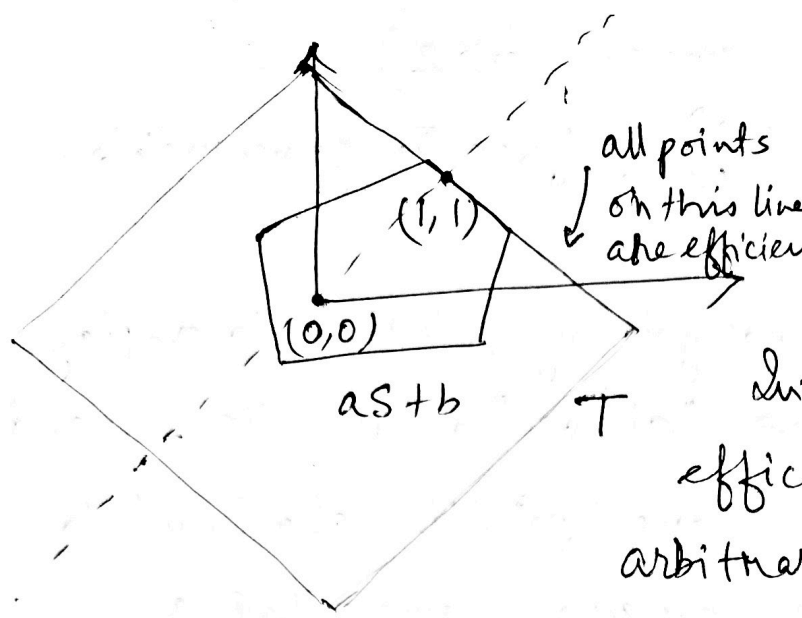 all points
on this line
are efficien
(1, 1)
(0,0)
aS + b
T
effic
arbitrar